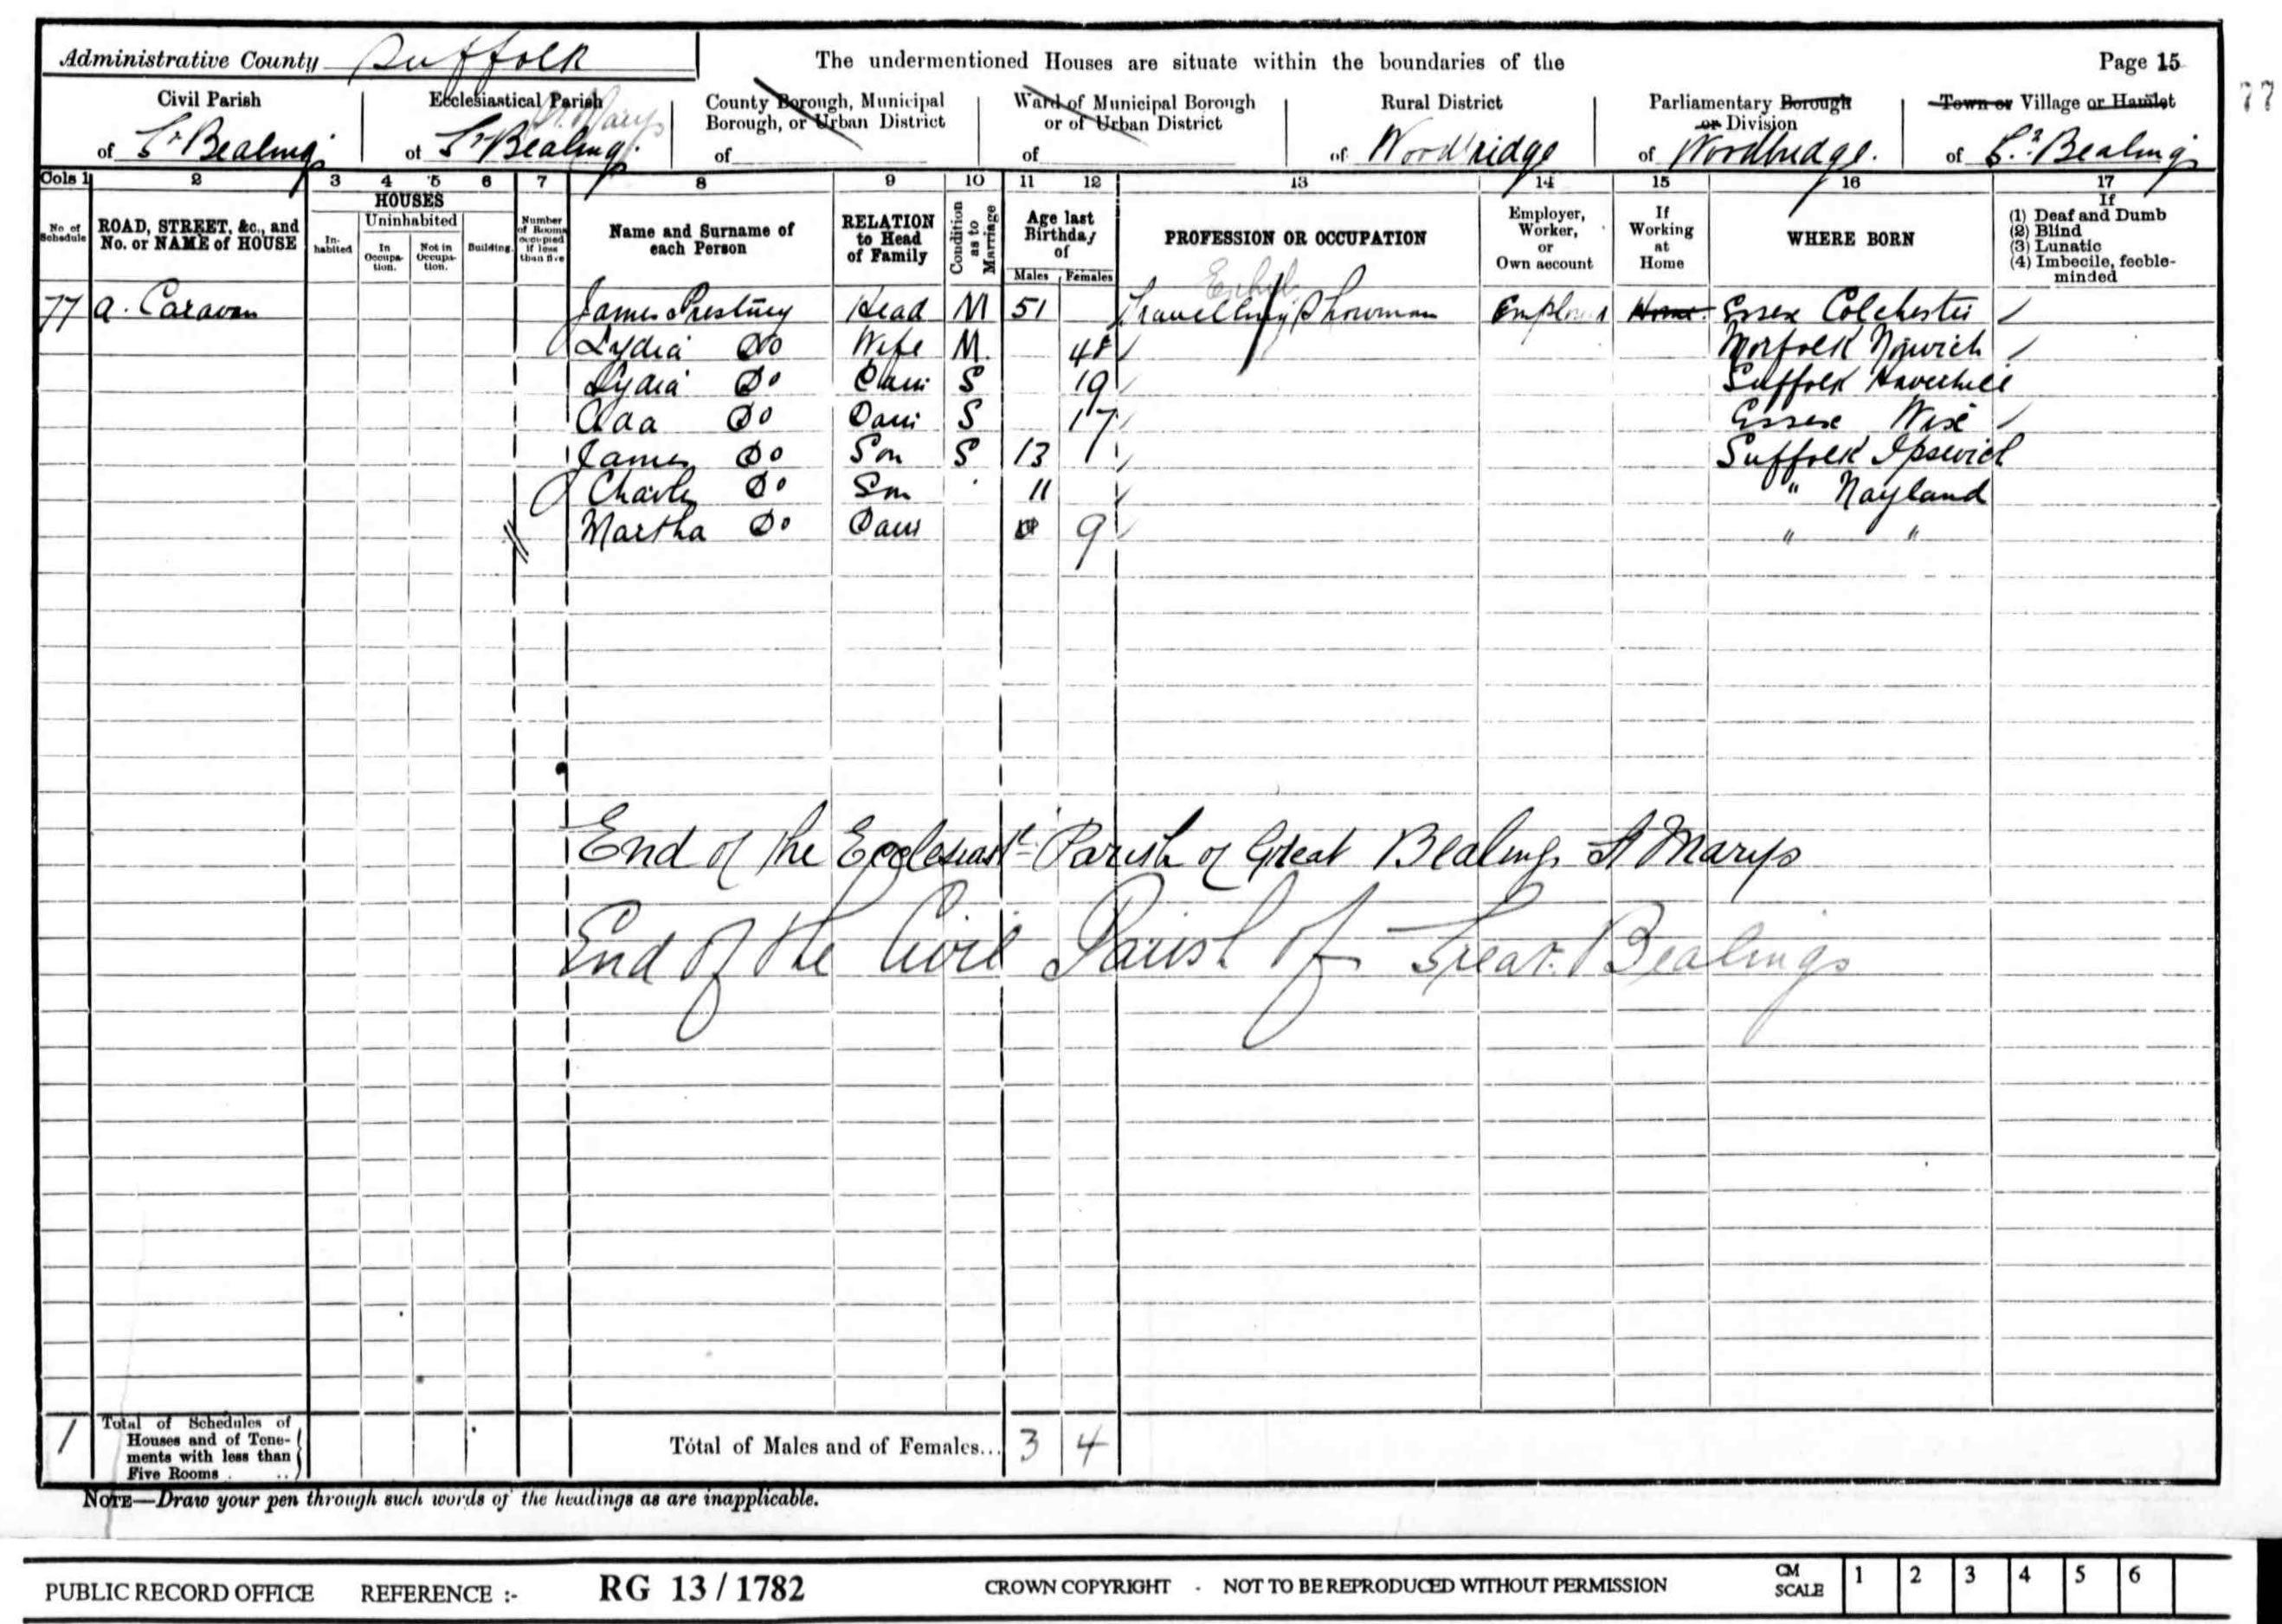 Administrative County Suffolk
The undermentioned Houses are situate within the boundaries of the
Page 15
77
Civil Parish
of Gt Bealings
Ecclesiastical Parish
St Marys
of Gt Bealings
County Borough, Municipal
Borough, or Urban District
of
Ward of Municipal Borough
or of Urban District
of
Rural District
of Woodbridge
Parliamentary Borough
or Division
of Woodbridge.
Town or Village or Hamlet
of Gt Bealings
Cols 1 2 3 4 5 6 7 8 9 10 11 12 13 14 15 16 17
No of Schedule
ROAD, STREET, &c., and No. or NAME of HOUSE
HOUSES
In-habited
Uninhabited
In Occupa-tion.
Not in Occupa-tion.
Building.
Number of Rooms occupied if less than five
Name and Surname of each Person
RELATION to Head of Family
Condition as to Marriage
Age last Birthday of
Males Females
PROFESSION OR OCCUPATION
Employer, Worker, or Own account
If Working at Home
WHERE BORN
If
(1) Deaf and Dumb
(2) Blind
(3) Lunatic
(4) Imbecile, feeble-minded
77 A. Caravan James Head M 51 Travelling Showman Employer Home Essex Colchester
Lydia Do Wife M. Norfolk Norwich
Lydia Do Dau S 19 Suffolk Haverhill
Ada Do Dau S 17 Essex
James Do Son S 13 Suffolk Ipswich
Charles Do Son 11 " Nayland
Martha Do Dau 9 " "
End of the Ecclesiastl Parish of Great Bealings St Marys
End of the Civil Parish of Great Bealings
1 Total of Schedules of Houses and of Tene-ments with less than Five Rooms . ..
Total of Males and of Females... 3 4
NOTE—Draw your pen through such words of the headings as are inapplicable.
PUBLIC RECORD OFFICE REFERENCE :- RG 13 / 1782 CROWN COPYRIGHT - NOT TO BE REPRODUCED WITHOUT PERMISSION CM SCALE 1 2 3 4 5 6